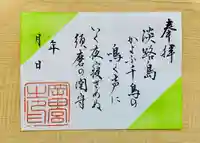 奉拝
淡路島
かよふ千鳥の
鳴く声に
いく夜寝ざめぬ
須磨の関守
年
月 日